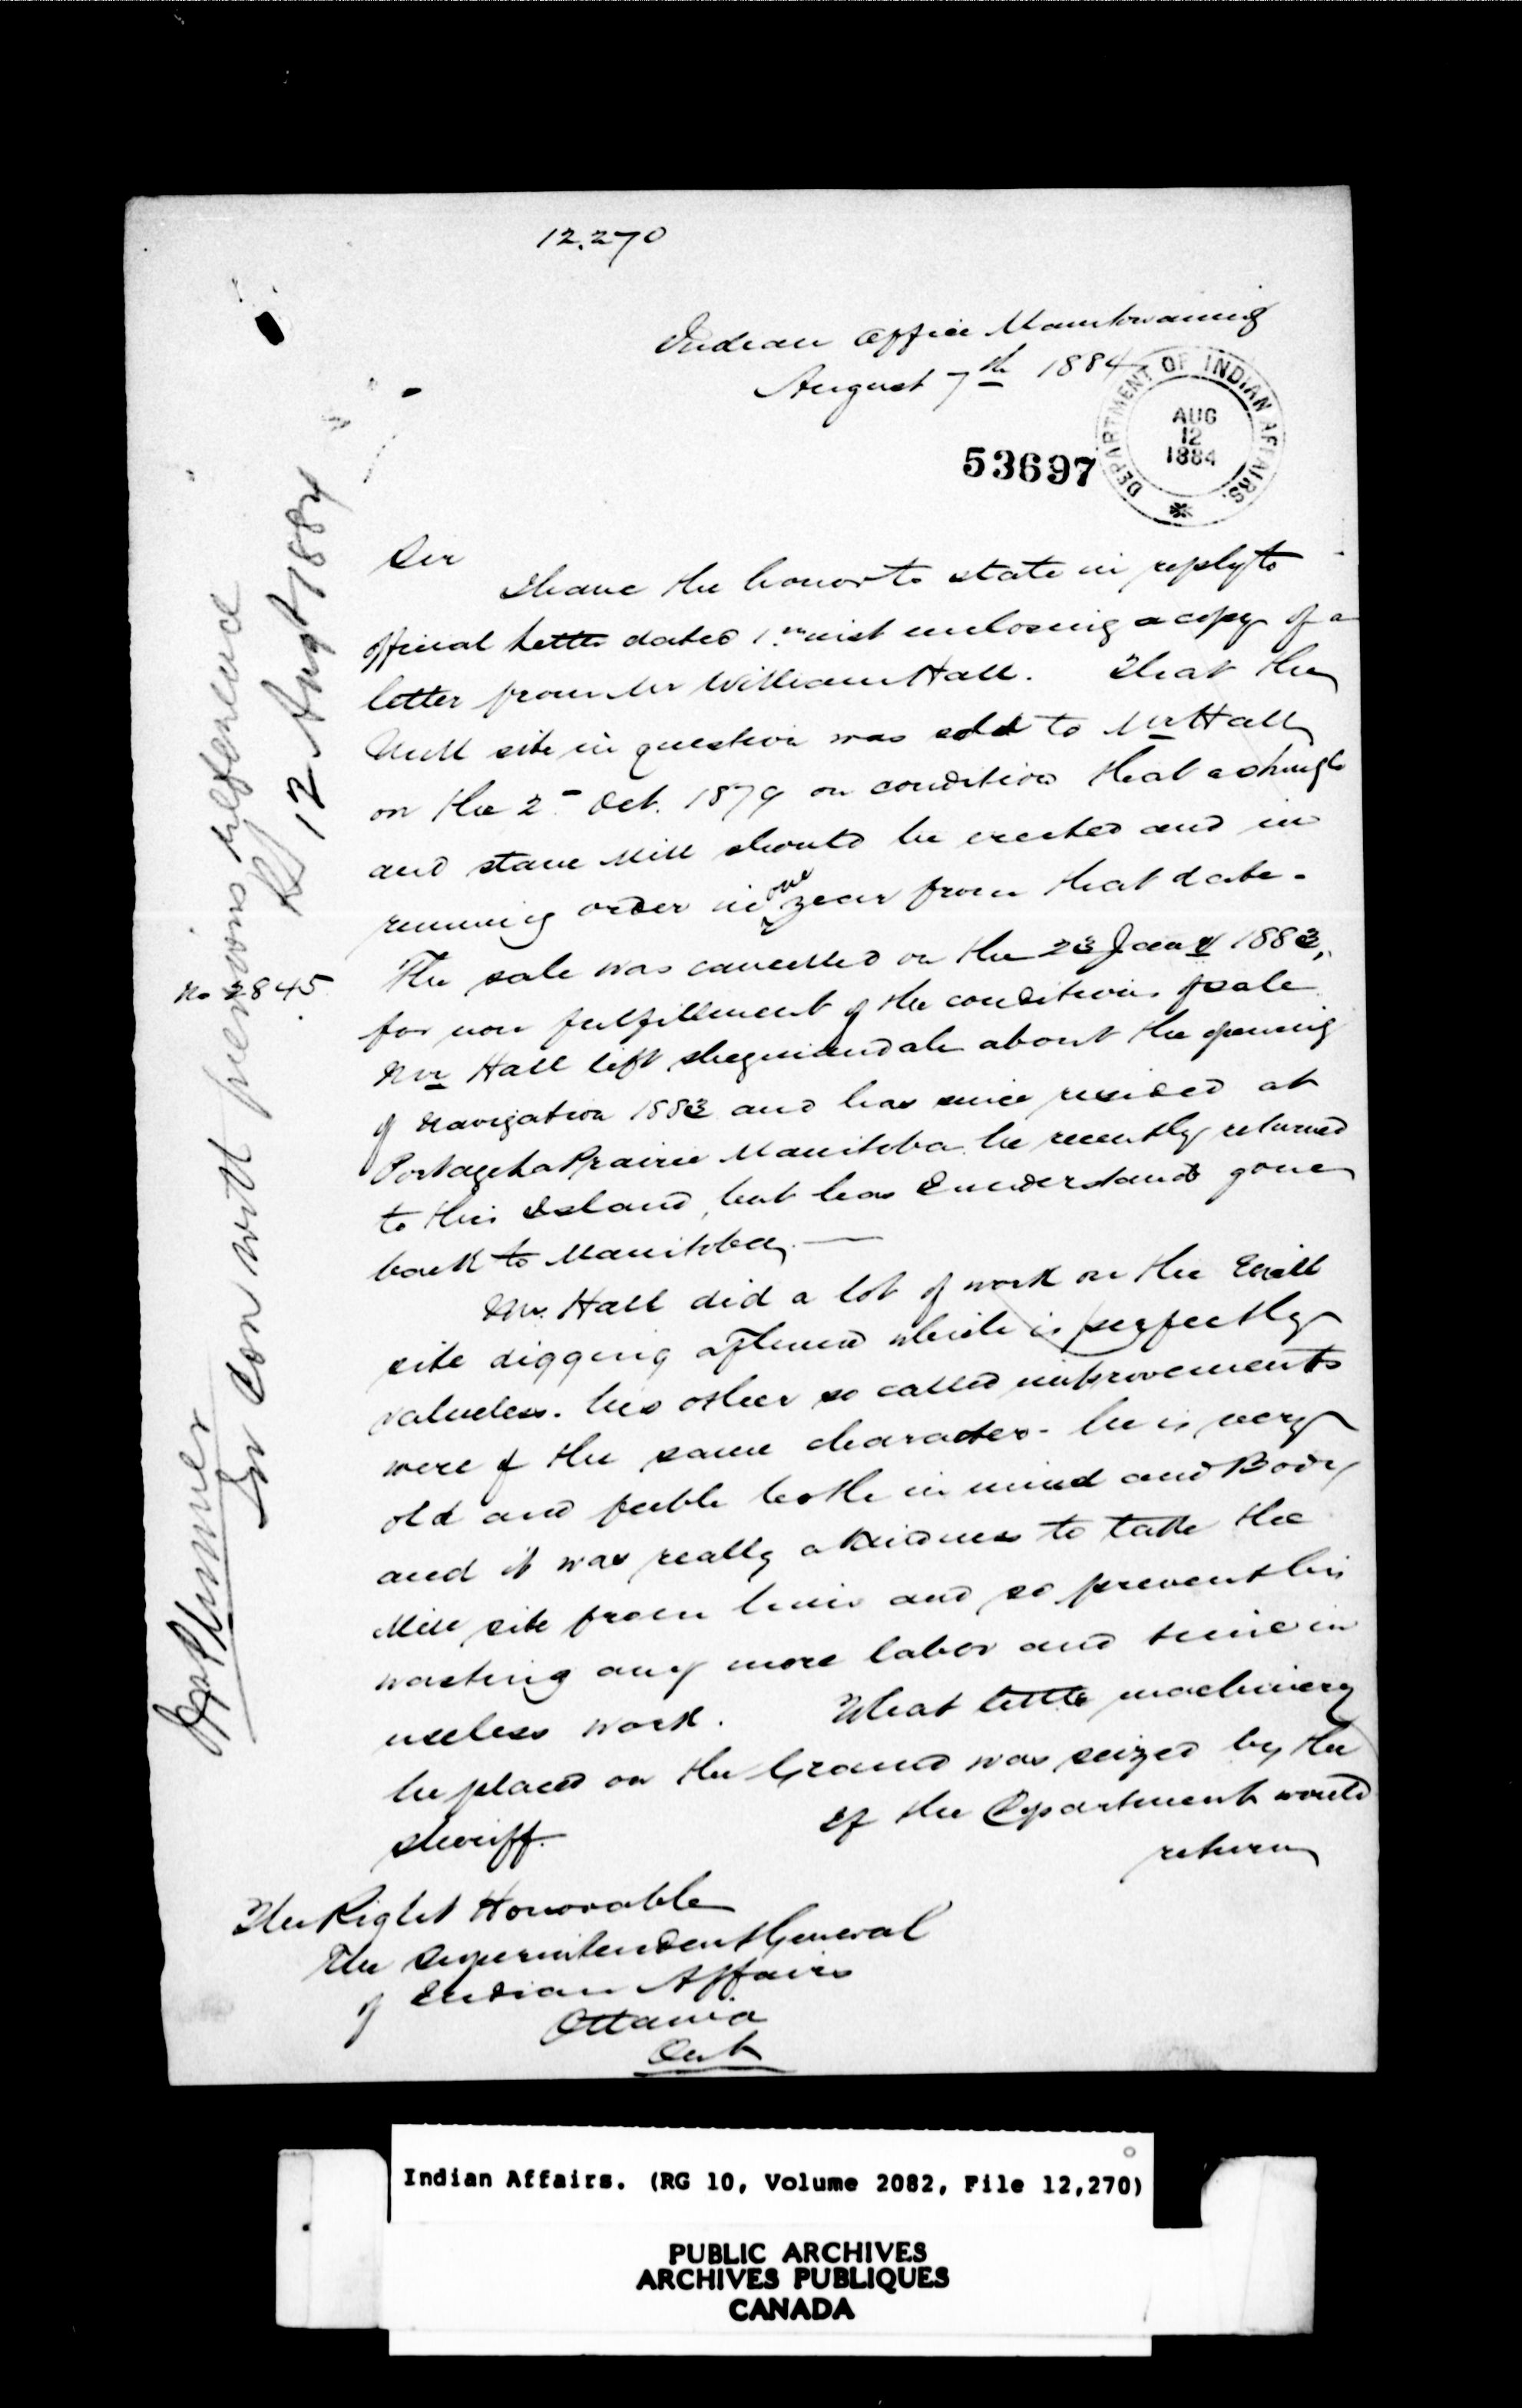 12.270
Indian Office Manitowaning
August 7th 1884
DEPARTMENT OF INDIAN AFFAIRS.
AUG
12
1884
53697
Sir
I have the honor to state in reply to
official Letter dated 1st inst enclosing a copy of a
letter from Mr William Hall. That the
Mill site in question was sold to Mr Hall
on the 2nd Oct. 1879 on condition that a shingle
and stave Mill should be erected and in
running order in one year from that date.
No 2845
The sale was cancelled on the 23 Jany 1883,
for non fulfillment of the conditions of sale
Mr Hall left Sheguiandah about the opening
of Navigation 1883 and has since resided at
Portage La Prairie Manitoba he recently returned
to this Island, but has I understand gone
back to Manitoba. —
Mr. Hall did a lot of work on the Mill
site digging a flume which is perfectly
valueless. his other so called improvements
were of the same character - he is very
old and feeble both in mind and Body
and it was really a kindness to take the
Mill site from him and so prevent his
wasting any more labor and time in
useless work. What little machinery
he placed on the Ground was seized by the
sheriff. If the Department would
return
The Right Honorable
The Superintendent General
of Indian Affairs
Ottawa
Ont
Mr Plummer
In Con with previous reference
12 Augt 1884
Indian Affairs. (RG 10, Volume 2082, File 12,270)
PUBLIC ARCHIVES
ARCHIVES PUBLIQUES
CANADA